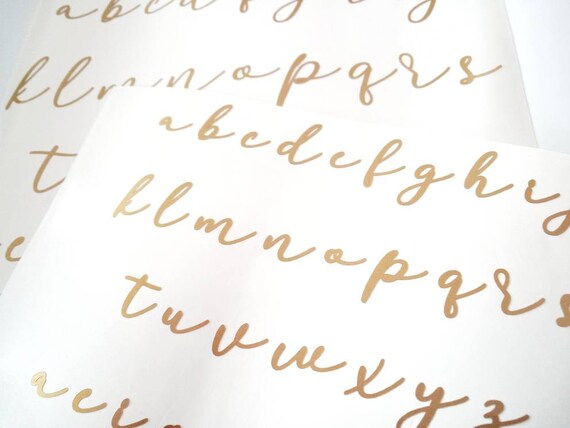 a b c d f g h i j
k l m n o p q r s
t
a b c d e f g h i j
k l m n o p q r s
t u v w x y z
a e i o